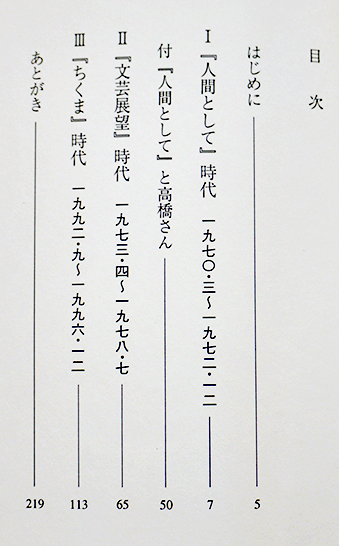 目次
はじめに 5
Ⅰ 『人間として』時代 一九七〇・三〜一九七二・一二 7
付 『人間として』と高橋さん 50
Ⅱ 『文芸展望』時代 一九七三・四〜一九七八・七 65
Ⅲ 『ちくま』時代 一九九二・九〜一九九六・一二 113
あとがき 219